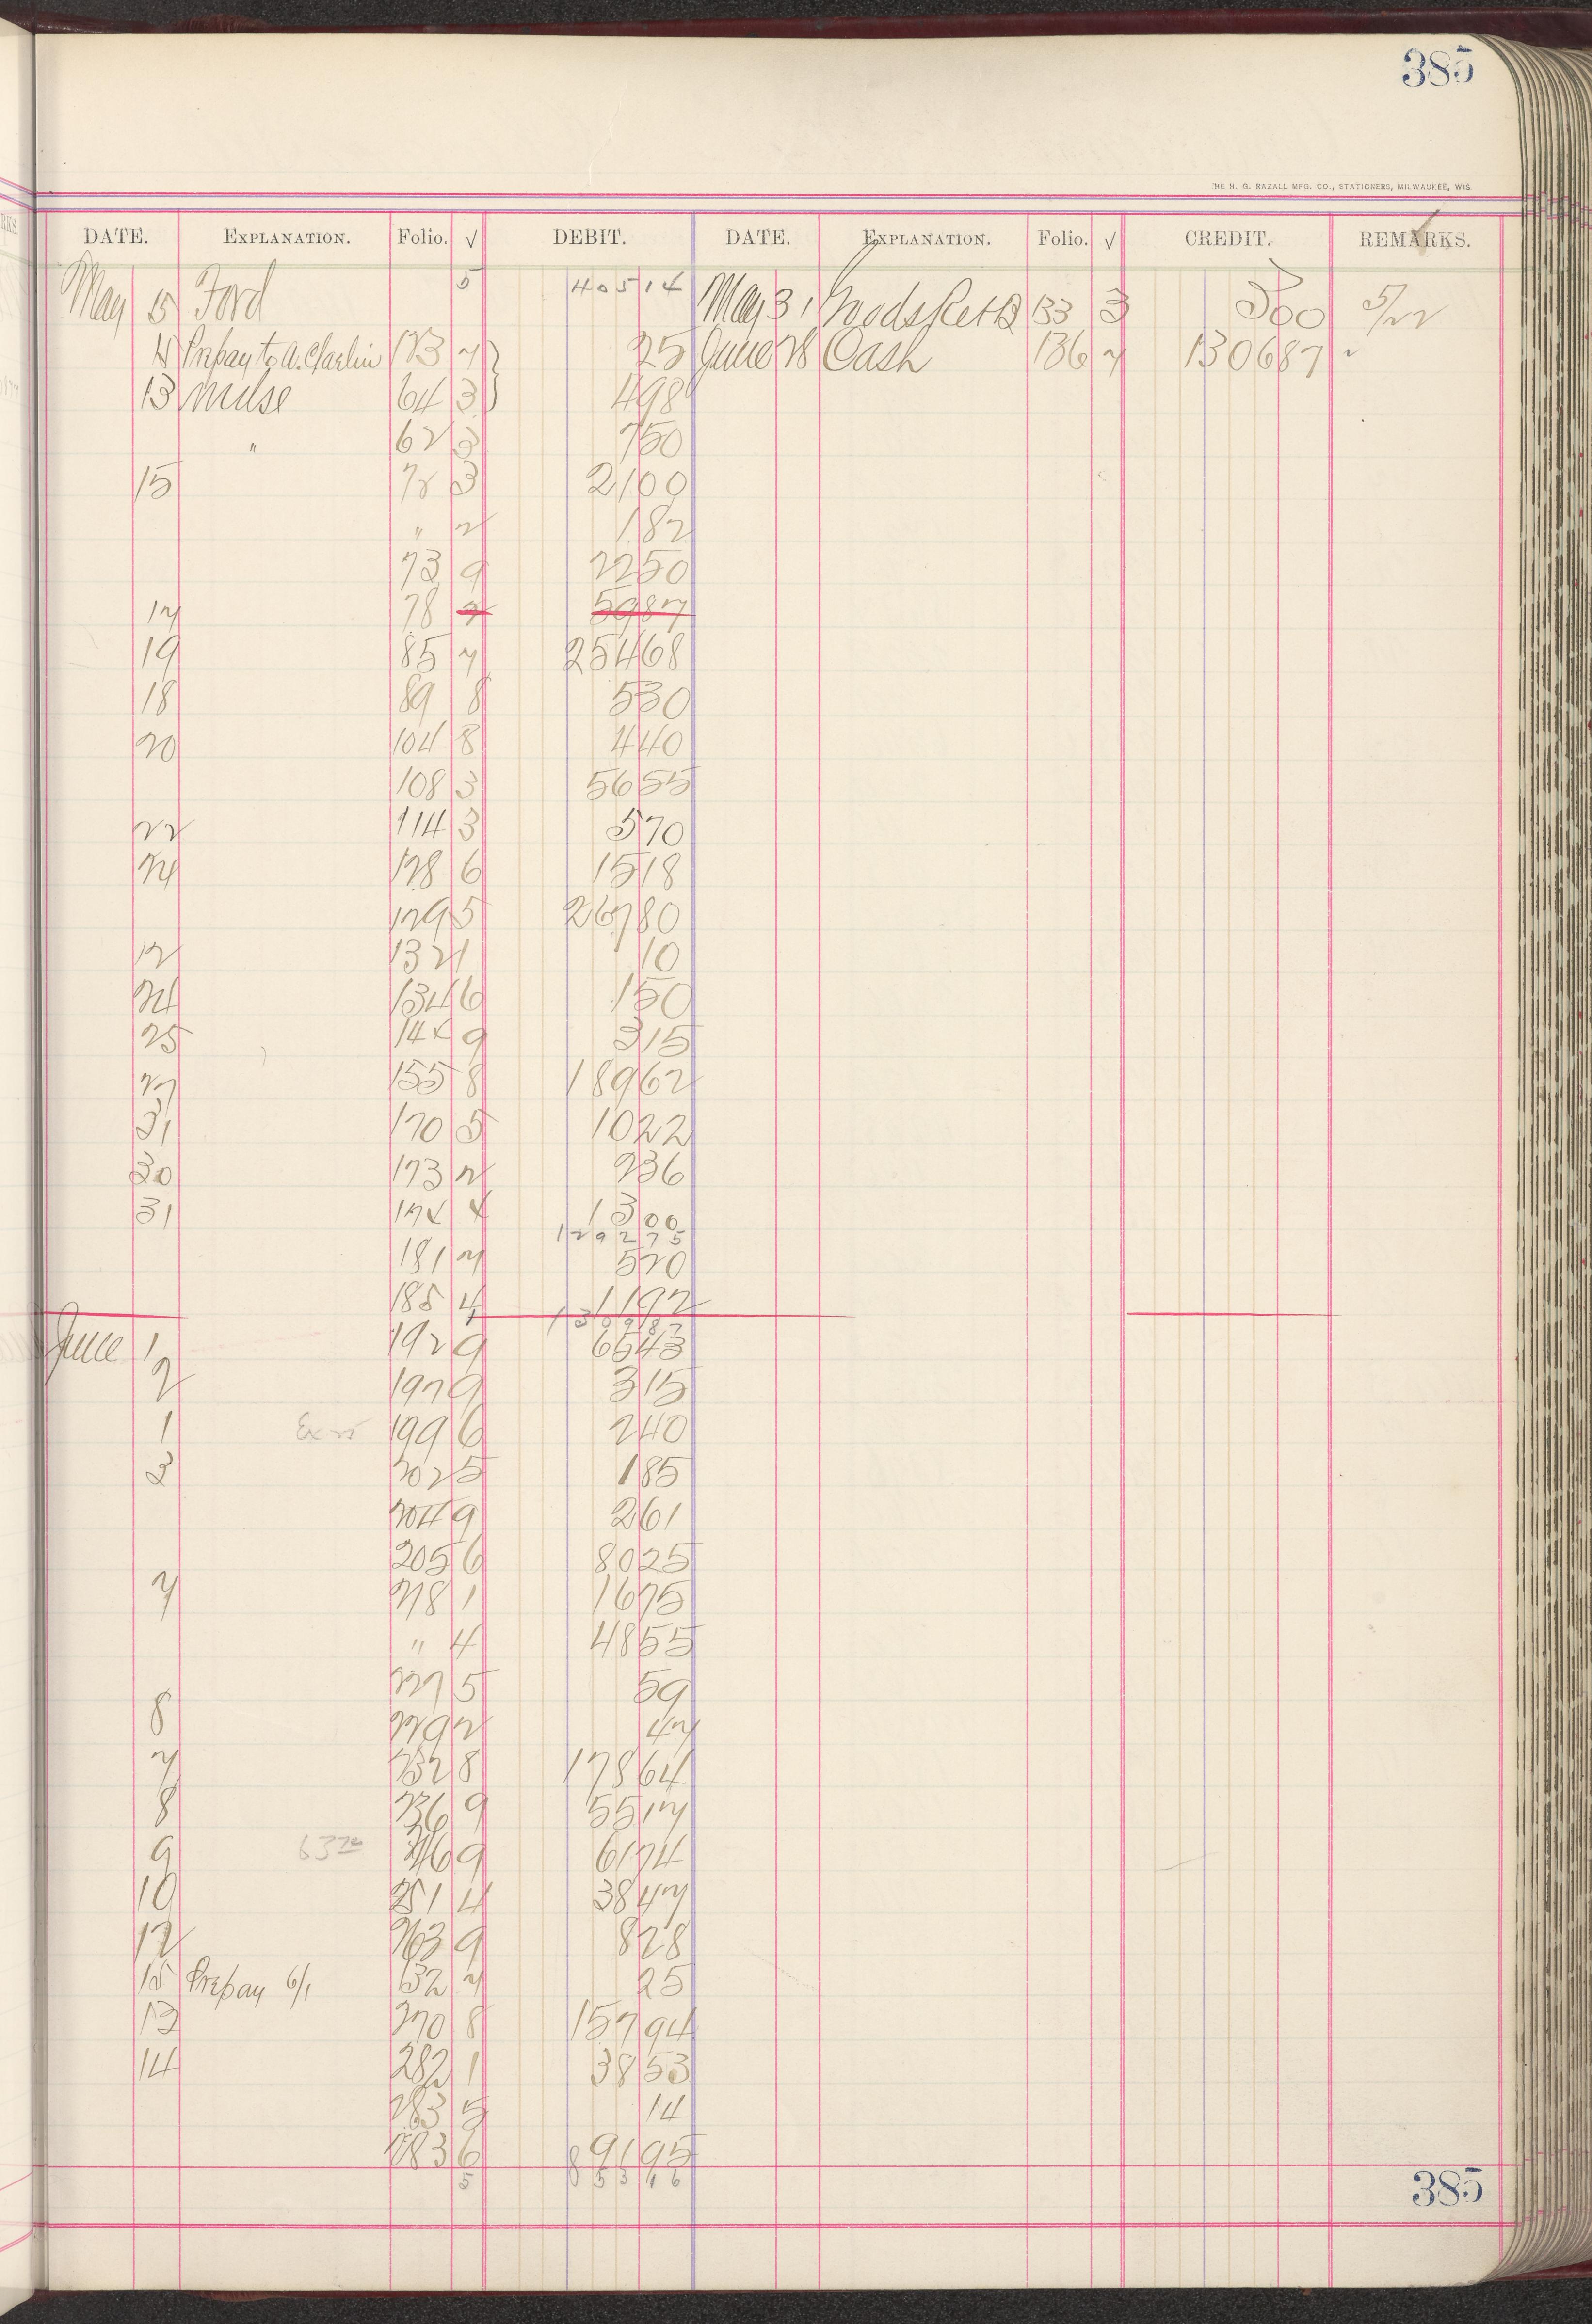 385
THE H. G. RAZALL MFG. CO., STATIONERS, MILWAUKEE, WIS.
DATE. EXPLANATION. Folio. √ DEBIT. DATE. EXPLANATION. Folio. √ CREDIT. REMARKS.
May 15 Ford 5 40514 May 31 133 3 500 5/22
Prepay to 133 7 25 June 28 Cash 136 7 130687
13 Mdse 64 3 498
" 62 3 750
15 78 3 2100
" 2 182
73 9 2250
17 78 5987
19 85 7 25468
18 89 8 530
20 104 8 440
108 3 5655
22 114 3 570
24 128 6 1518
129 5 26780
12 132 1 10
24 134 6 150
25 144 9 315
27 155 8 18962
31 170 5 1022
30 173 2 936
31 174 4 1300
129275
181 7 570
185 4 1192
June 1 192 9 6543
2 197 9 315
1 199 6 240
3 202 5 185
204 9 261
205 6 8025
7 218 1 1675
" 4 4855
227 5 59
8 229 2 47
7 232 8 17864
8 236 9 5517
9 246 9 6174
10 251 4 3847
12 263 9 828
15 Prepay 6/1 152 7 25
13 270 8 15794
14 282 1 3853
283 5 14
283 6 9195
5 85546
385